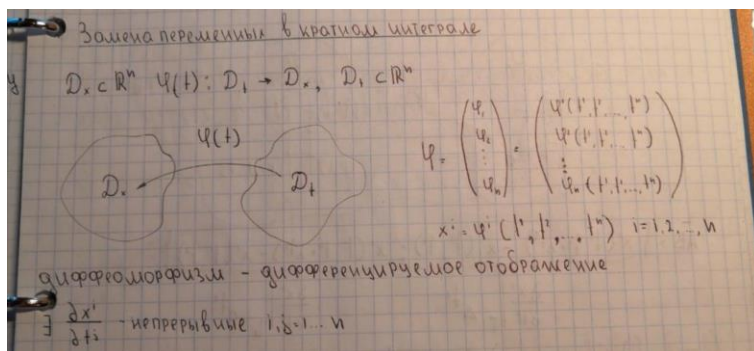 Замена переменных в кратном интеграле
Dₓ ⊂ ℝⁿ φ(t): Dₜ → Dₓ, Dₜ ⊂ ℝⁿ
φ(t)
Dₓ Dₜ
φ = (φ₁ φ₂ ⋮ φₙ) = (φ¹(t¹, t², ..., tⁿ) φ²(t¹, t², ..., tⁿ) ⋮ φₙ(t¹, t², ..., tⁿ))
xⁱ = φⁱ(t¹, t², ..., tⁿ) i = 1, 2, ..., n
диффеоморфизм - дифференцируемое отображение
∃ ∂xⁱ/∂tʲ - непрерывные i, j = 1 ... n